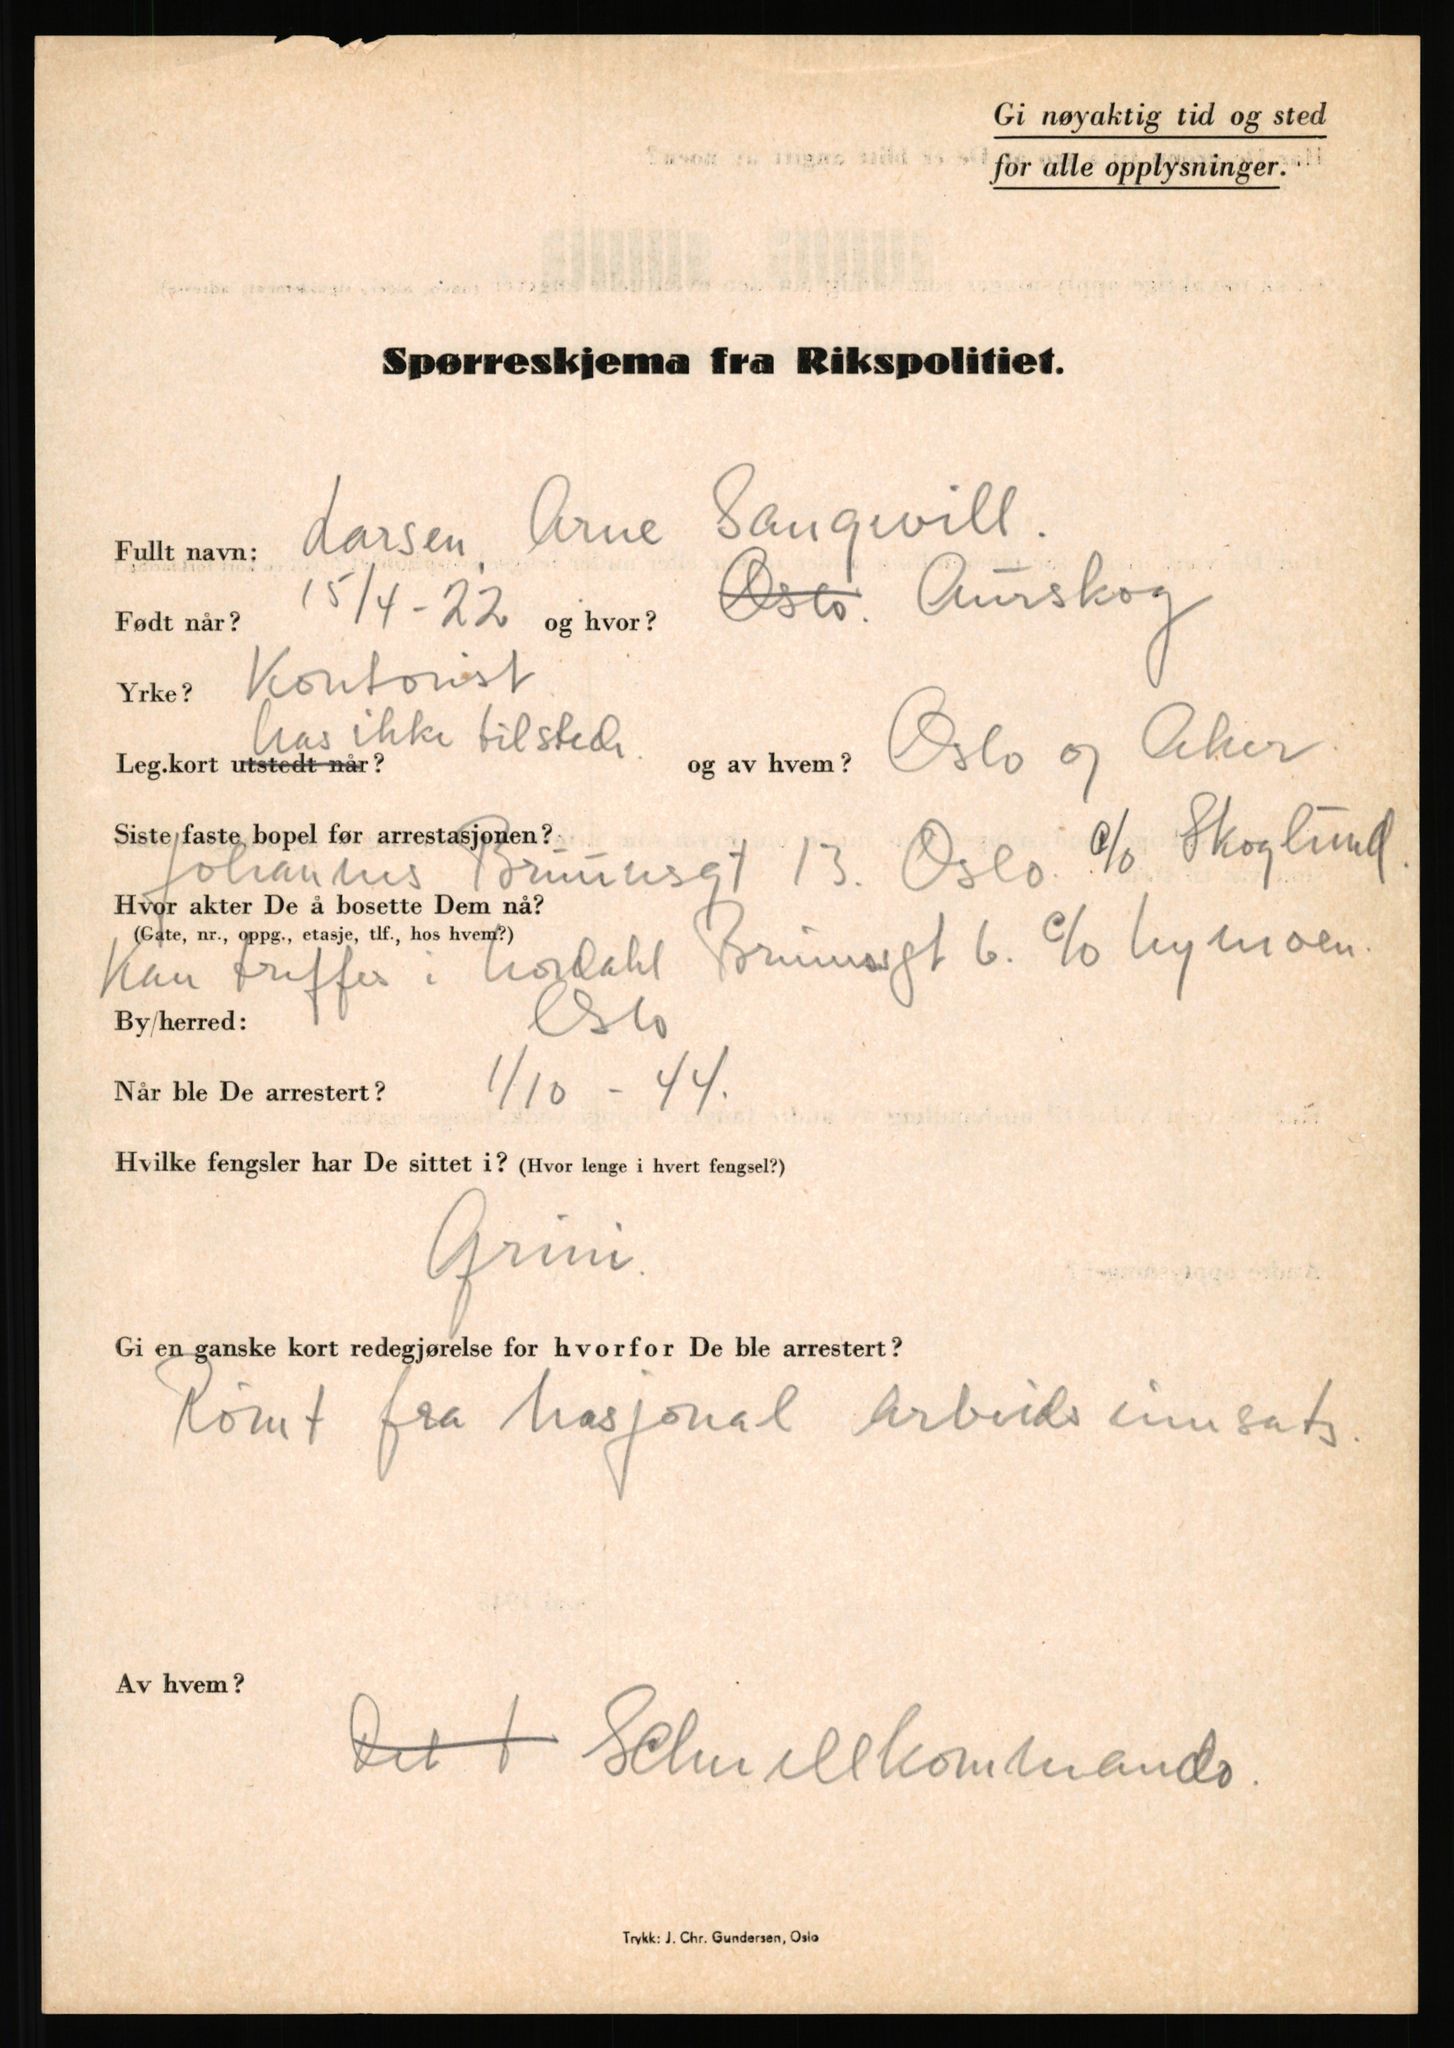 Gi nøyaktig tid og sted
for alle opplysninger.
Spørreskjema fra Rikspolitiet.
Fullt navn: Larsen, Arne Sanqwill.
Født når? 15/4-22 og hvor? Oslo. Aurskog
Yrke? Kontorist
has ikke tilstede
Leg.kort utstedt når? og av hvem? Oslo og Aker.
Siste faste bopel før arrestasjonen?
Johannes Bruunsgt 13. Oslo. c/o Skoglund.
Hvor akter De å bosette Dem nå?
(Gate, nr., oppg., etasje, tlf., hos hvem?)
Kan treffes i Nordahl Brunsgt 6. c/o Nymoen.
By/herred: Oslo
Når ble De arrestert? 1/10 - 44.
Hvilke fengsler har De sittet i? (Hvor lenge i hvert fengsel?)
Grini.
Gi en ganske kort redegjørelse for hvorfor De ble arrestert?
Rømt fra Nasjonal Arbeids innsats.
Av hvem?
Det t Schnellkommando.
Trykk: J. Chr. Gundersen, Oslo